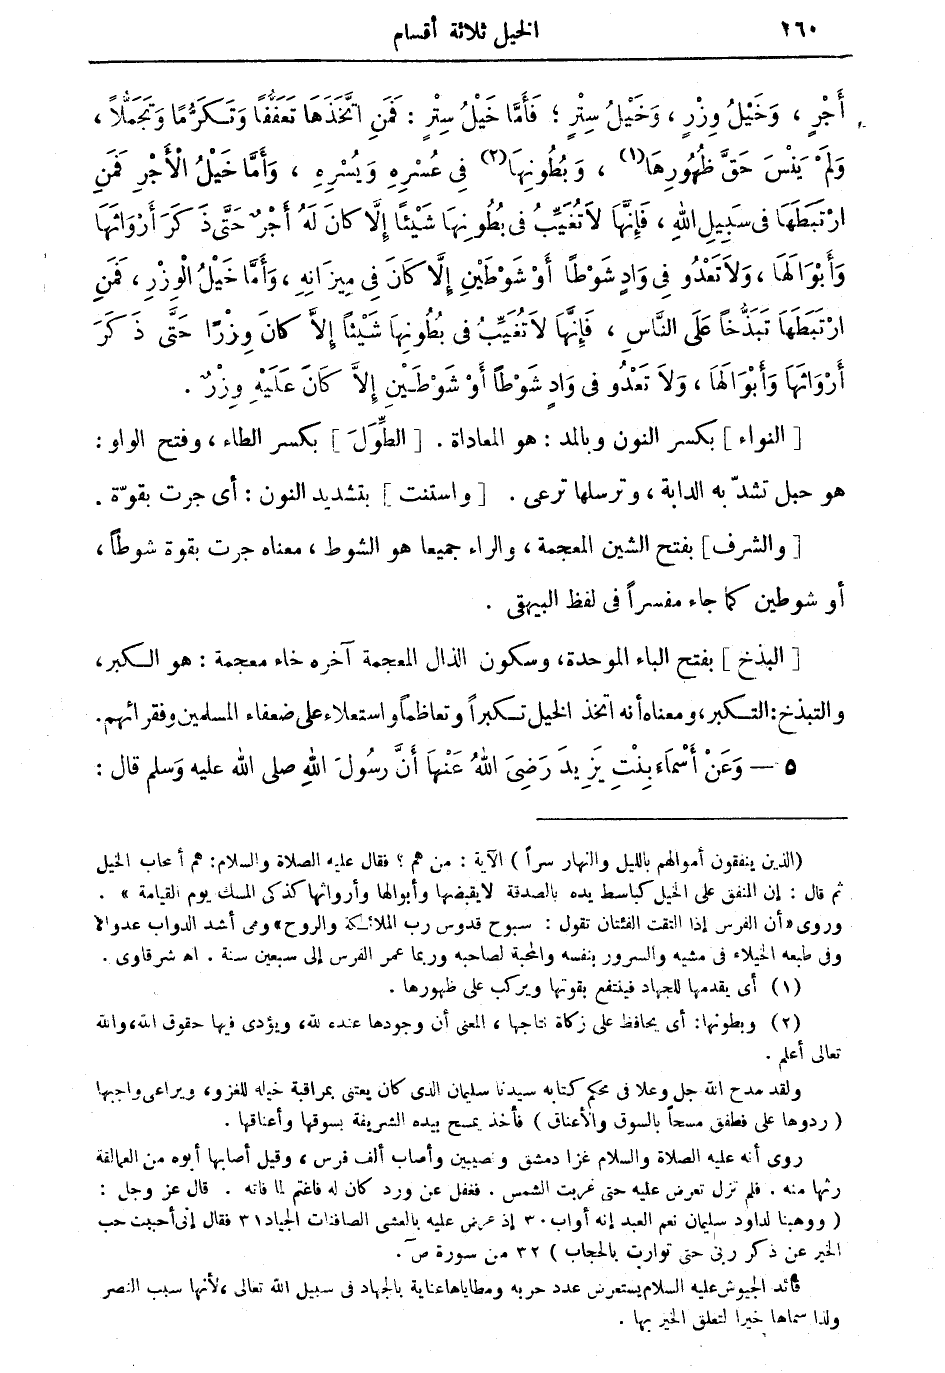 ٢٦٠
الخيل ثلاثة أقسام
أَجْرٍ ، وَخَيْلُ وِزْرٍ ، وَخَيْلُ سِتْرٍ ؛ فَأَمَّا خَيْلُ سِتْرٍ : فَمَنِ اتَّخَذَهَا تَعَفُّفًا وَتَكَرُّمًا وَتَجَمُّلًا ،
وَلَمْ يَنْسَ حَقَّ ظُهُورِهَا (١) ، وَبُطُونِهَا (٢) فِي عُسْرِهِ وَيُسْرِهِ ، وَأَمَّا خَيْلُ الْأَجْرِ فَمَنِ
ارْتَبَطَهَا فِى سَبِيلِ اللهِ ، فَإِنَّهَا لَا تُغَيِّبُ فِى بُطُونِهَا شَيْئًا إِلَّا كَانَ لَهُ أَجْرٌ حَتَّى ذَكَرَ أَرْوَاثَهَا
وَأَبْوَالَهَا ، وَلَا تَعْدُو فِى وَادٍ شَوْطًا أَوْ شَوْطَيْنِ إِلَّا كَانَ فِى مِيزَانِهِ ، وَأَمَّا خَيْلُ الْوِزْرِ ، فَمَنِ
ارْتَبَطَهَا تَبَذُّخًا عَلَى النَّاسِ ، فَإِنَّهَا لَا تُغَيِّبُ فِى بُطُونِهَا شَيْئًا إِلَّا كَانَ وِزْرًا حَتَّى ذَكَرَ
أَرْوَاثَهَا وَأَبْوَالَهَا ، وَلَا تَعْدُو فِى وَادٍ شَوْطًا أَوْ شَوْطَيْنِ إِلَّا كَانَ عَلَيْهِ وِزْرٌ .
[ النواء ] بكسر النون وبالمد : هو المعاداة . [ الطِّوَلَ ] بكسر الطاء ، وفتح الواو :
هو حبل تشدّ به الدابة ، وترسلها ترعى . [ واستنت ] بتشديد النون : أى جرت بقوّة .
[ والشرف ] بفتح الشين المعجمة ، والراء جميعا هو الشوط ، معناه جرت بقوة شوطاً ،
أو شوطين كما جاء مفسراً فى لفظ البيهقى .
[ البذخ ] بفتح الباء الموحدة ، وسكون الذال المعجمة آخره خاء معجمة : هو الكبر ،
والتبذخ : التكبر ، ومعناه أنه اتخذ الخيل تكبراً وتعاظماً واستعلاء على ضعفاء المسلمين وفقرائهم .
٥ — وَعَنْ أَسْمَاءَ بِنْتِ يَزِيدَ رَضِىَ اللهُ عَنْهَا أَنَّ رَسُولَ اللهِ صلى الله عليه وَسلم قال :
(الذين ينفقون أموالهم بالليل والنهار سراً ) الآية : من هم ؟ فقال عليه الصلاة والسلام : هم أصحاب الخيل
ثم قال : إن المنفق على الخيل كباسط يده بالصدقة لايقبضها وأبوالها وأرواثها كذكى المسك يوم القيامة » .
وروى «أن الفرس إذا التقت الفئتان تقول : سبوح قدوس رب الملائكة والروح» ومى أشد الدواب عدوالا
وفى طبعه الخيلاء فى مشيه والسرور بنفسه والمحبة لصاحبه وربما عمر الفرس إلى سبعين سنة . اه شرقاوى .
(١) أى يقدمها للجهاد فينتفع بقوتها ويركب على ظهورها .
(٢) وبطونها : أى يحافظ على زكاة نتاجها ، المعنى أن وجودها عنده لله ، ويؤدى فيها حقوق الله ، والله
تعالى أعلم .
ولقد مدح الله جل وعلا فى محكم كتابه سيدنا سليمان الذى كان يعتنى بمراقبة خيله للغزو ، ويراعى واجبها
( ردوها على فطفق مسحاً بالسوق والأعناق ) فأخذ يمسح بيده الشريفة بسوقها وأعناقها .
روى أنه عليه الصلاة والسلام غزا دمشق ونصيبين وأصاب ألف فرس ، وقيل أصابها أبوه من العمالقة
رثها منه . فلم تزل تعرض عليه حتى غربت الشمس . فغفل عن ورد كان له فاغتم لما فاته . قال عز وجل :
( ووهبنا لداود سليمان نعم العبد إنه أواب ٣٠ إذ عرض عليه بالعشى الصافنات الجياد ٣١ فقال إنى أحببت حب
الخير عن ذكر ربى حتى توارت بالحجاب ) ٣٢ من سورة ص .
قائد الجيوش عليه السلام يستعرض عدد حربه ومطاياها عناية بالجهاد فى سبيل الله تعالى ، لأنها سبب النصر
ولذا سماها خيرا لتعلق الخير بها .